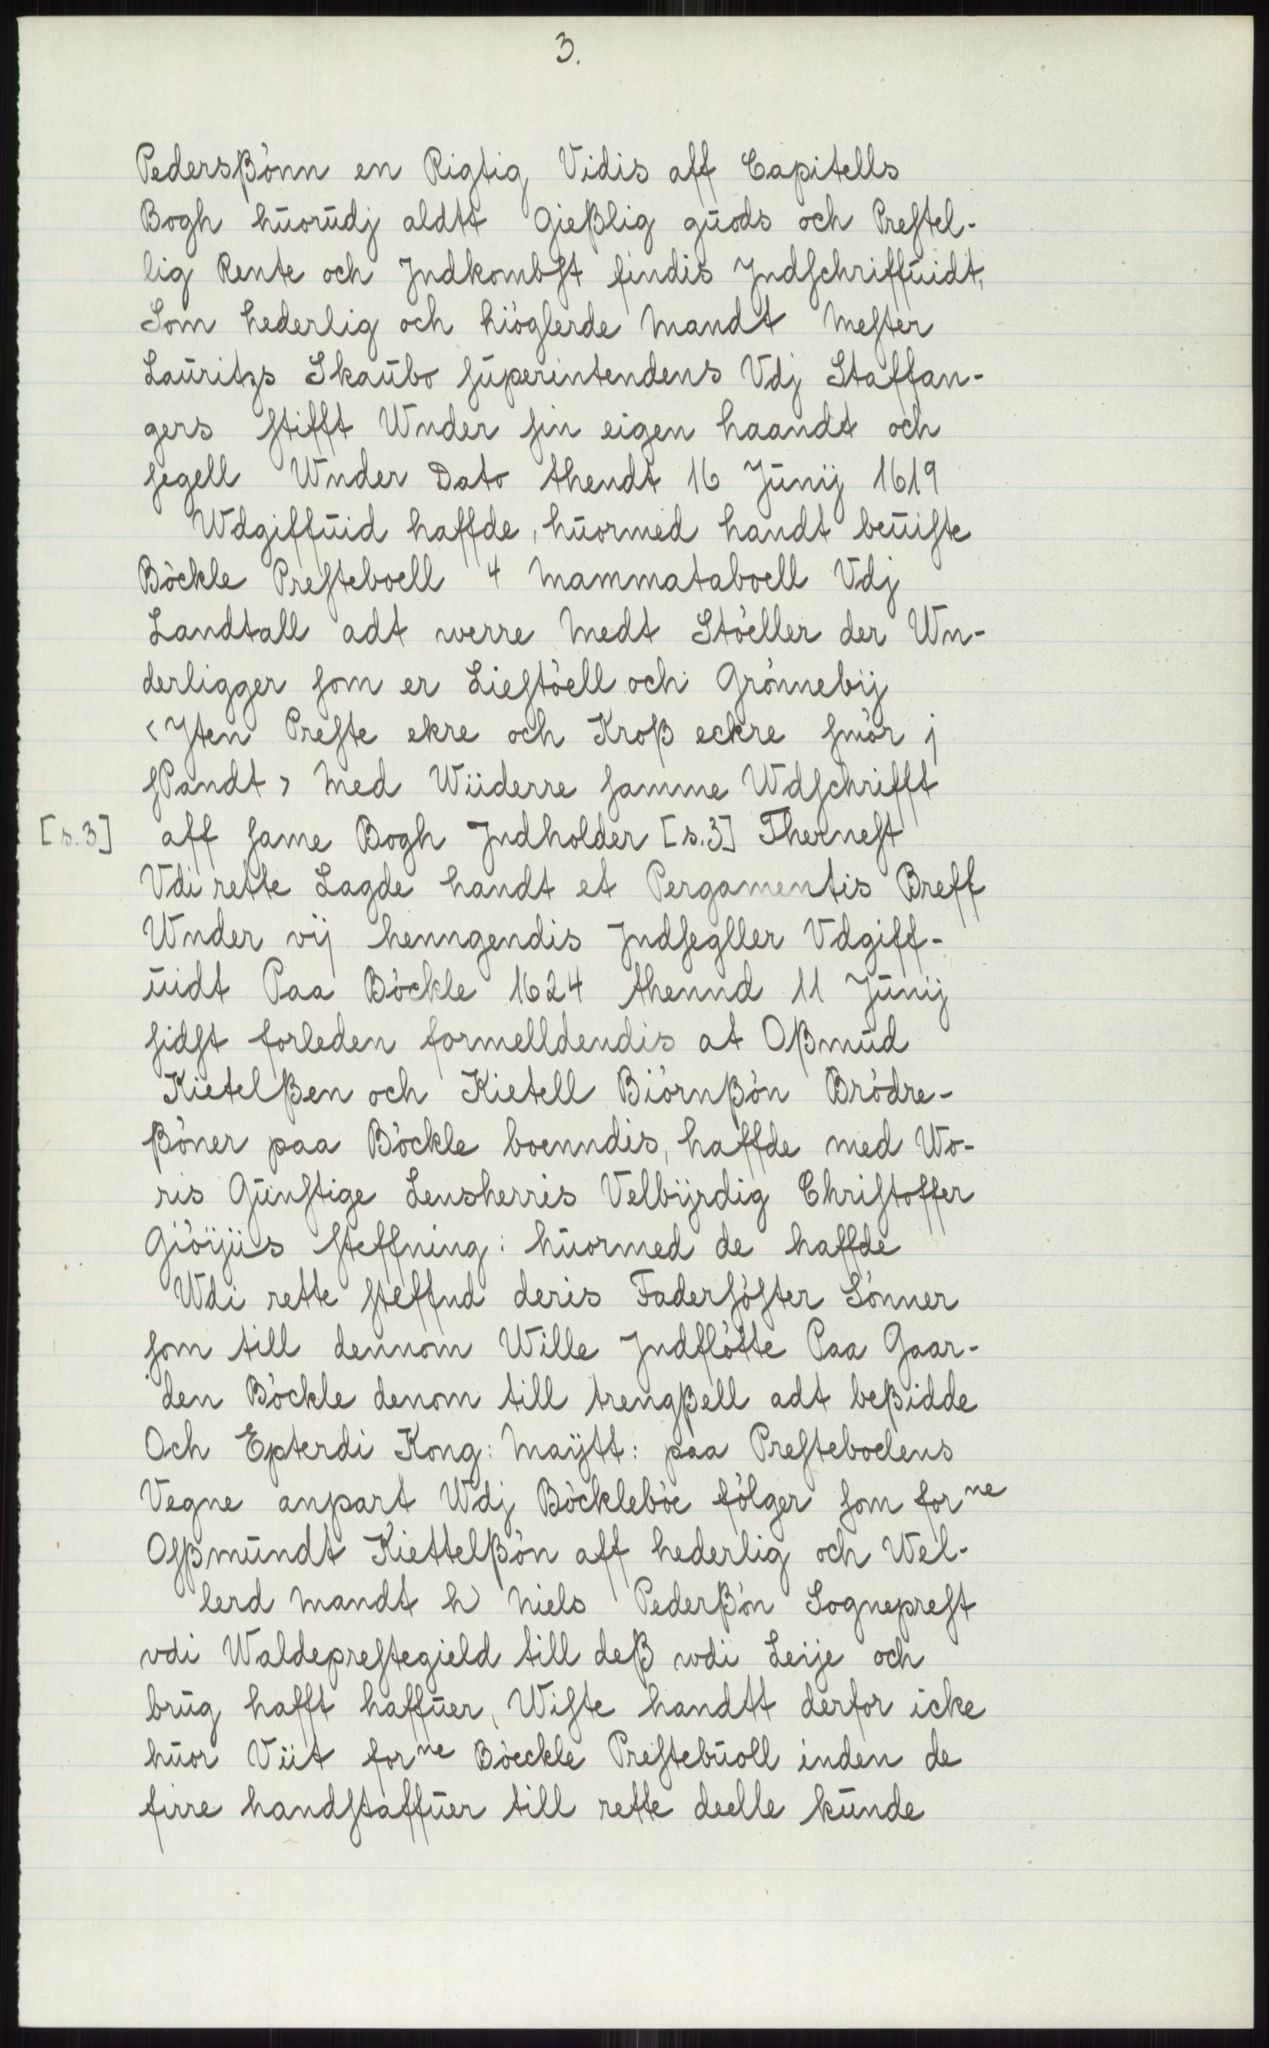 3.
Pedersßønn en Rigtig Vidis aff Capitells
Bogh huorudj aldtt Gießlig guods och Prestel-
lig Rente och Jndkombst findis Jndschriffuidt,
Som hederlig och høglerde Mandt Mester
Lauritzs Skaubo superintendens Vdj Staffan-
gers stifft Wnder sin eigen haandt och
segell Wnder Dato thendt 16 Junij 1619
Wdgiffuid haffde, huormed handt beuiste
Bøckle Presteboell 4 Mammataboell Vdj
Landtall adt werre Medt Støeller der Wn-
derligger som er Liestøell och Grønnebij
<Jten Preste ekre och Kroß eckre smør j
sPandt> Med Wiiderre samme Wdschrifft
[s.3] aff same Bogh Jndholder [s.3] Thernest
Vdi rette Lagde handt et Pergamentis Breff
Wnder vij henngendis Jndsegller Vdgiff-
uidt Paa Bøckle 1624 thennd 11 Junij
sidst forleden formelldendis at Oßmud
Kietelßen och Kietell Biørnßøn Brødre-
ßøner paa Bøckle boenndis, haffde med Wo-
ris Gunstige Lensherris Velbyrdig Christoffer
Giøyiis steffning: huormed de haffde
Wdi rette steffnd deris Fadersøster Sønner
som till dennom Wille Jndfløtte Paa Gaar-
den Bøckle denom till trengßell adt beßidde
Och Epterdi Kong: Maÿtt: paa Presteboelens
Vegne anpart Wdj Bøcklebøe følger som forne
Osßmundt Kiettelßøn aff hederlig och Wel-
lerd Mandt h Niels Pederßøn Sogneprest
vdi Waldeprestegield till deß wdi Leije och
brug hafft haffuer, Wiste handtt derfor icke
huor Viit forne Bøeckle Prestebuoll inden de
firre handstaffuer till rette deelle kunde